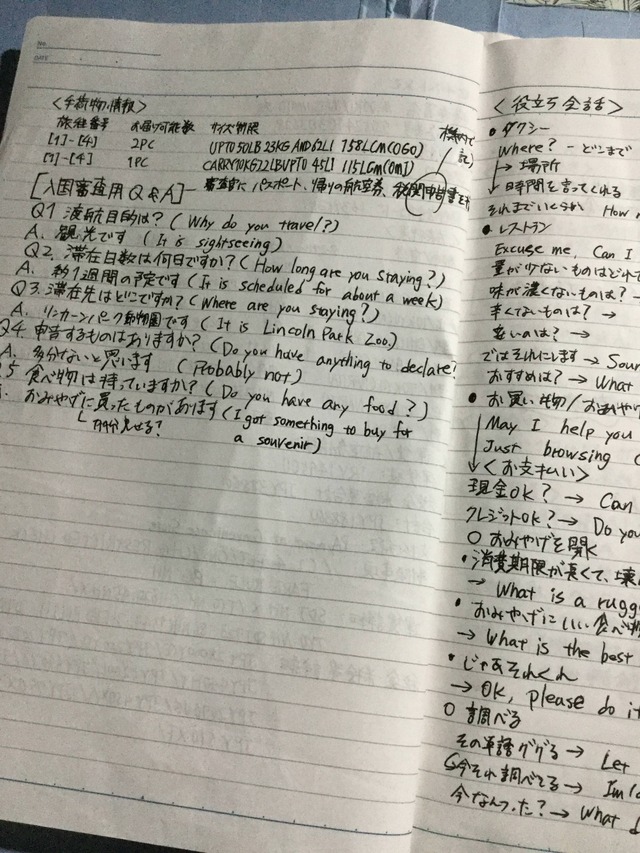 No.
DATE
<手荷物情報>
旅程番号 お届け可能数 サイズ制限
[1]-[4] 2PC UPTO50LB 23KG AND62LI 158LCM(OGO)
[1]-[4] 1PC CARRY10KG22LBUPTO 45LI 115LCM(OMI)
機内で
記)
[入国審査用Q&A] 審査官に パスポート、帰りの航空券、税関申告書を
Q1 渡航目的は? (Why do you travel?)
A. 観光です (It is sightseeing)
Q2. 滞在日数は何日ですか? (How long are you staying?)
A. 約1週間の予定です (It is scheduled for about a week)
Q3. 滞在先はどこですか? (Where are you staying?)
A. リンカーンパーク動物園です (It is Lincoln Park Zoo.)
Q4. 申告するものはありますか? (Do you have anything to declare?
A. 多分ないと思います (Probably not)
5 食べ物は持っていますか? (Do you have any food?)
おみやげに買ったものがあります (I got something to buy for
a souvenir)
見せる?
<役立ち会話>
• タクシー
Where? - どこまで
→ 場所
→ 日時間を言ってくれる
それまでいくらか How
• レストラン
Excuse me, Can I
量が少ないものはどれで
味が濃くないものは? →
辛くないものは? →
安いのは? →
ではそれにします → Sour
おすすめは? → What
• お買い物/おみやげ
May I help you
Just browsing (
<お支払い>
現金OK? → Can
クレジットOK? → Do you
○ おみやげを聞く
・消費期限が長くて、壊
→ What is a rugg
・おみやげにいい食べ物
→ What is the best
・じゃあそれくれ
→ OK, please do it
○ 調べる
その単語ググる → Let
今それ調べてる → I'm lo
今なんつった? → What d